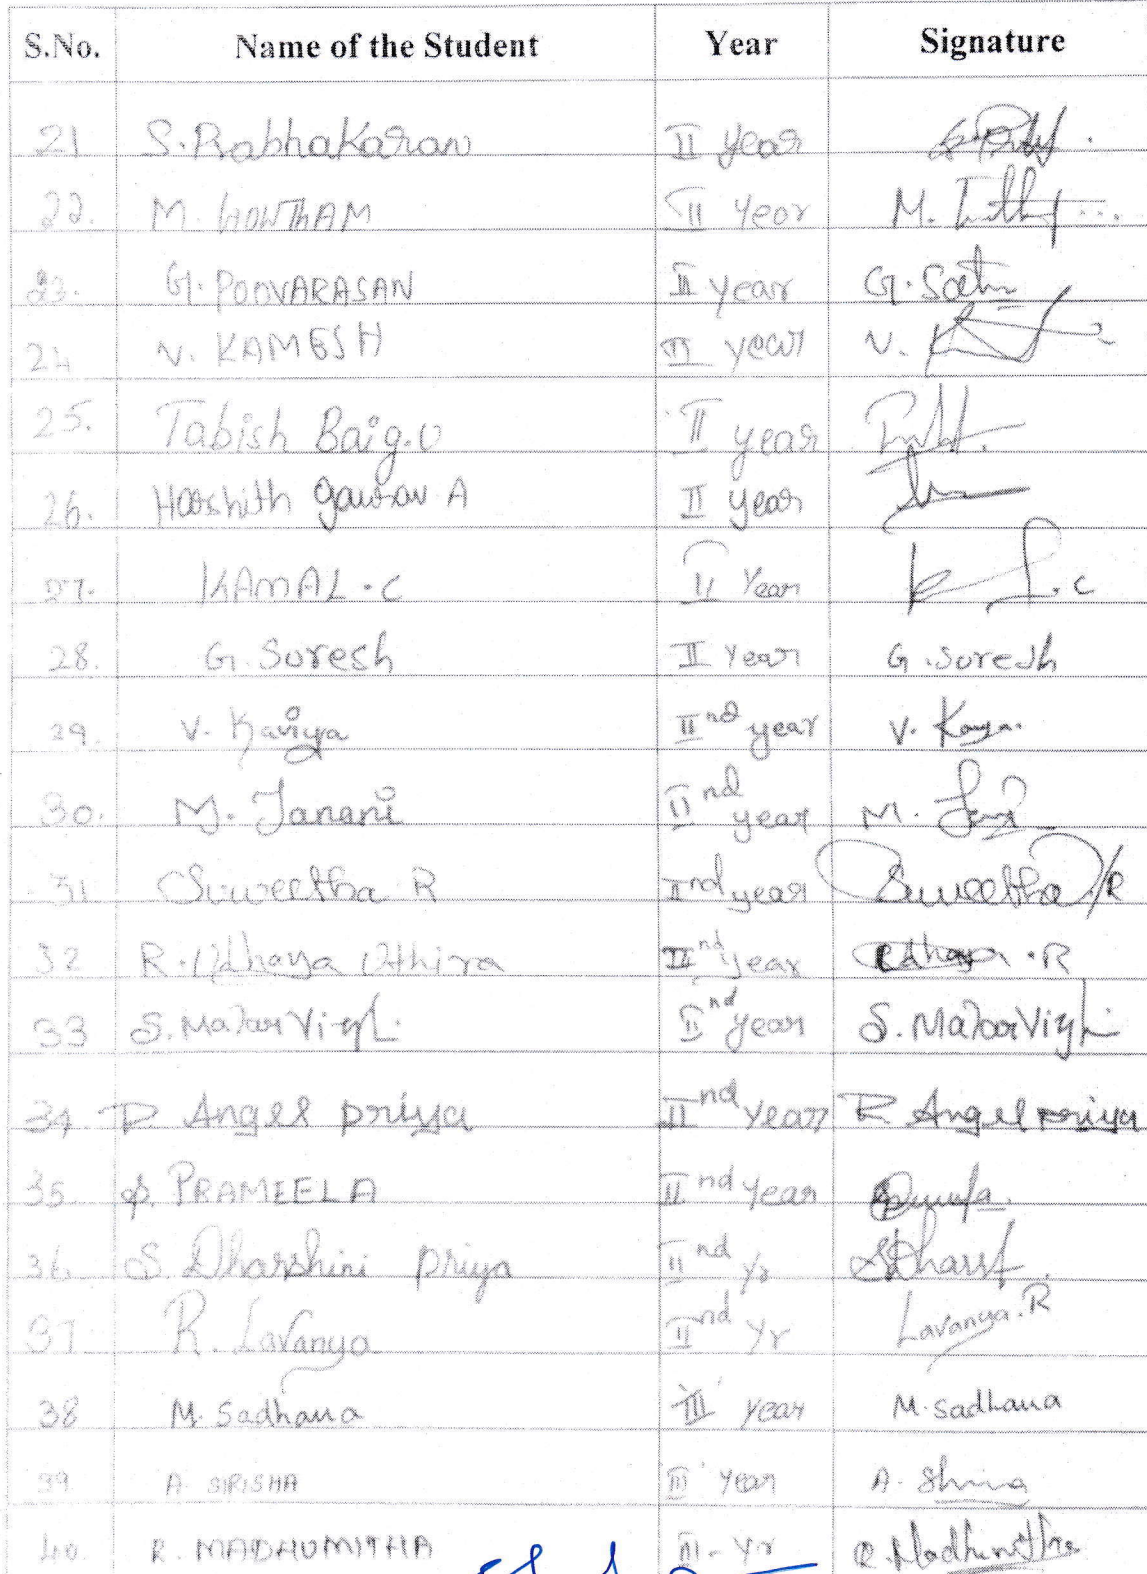 S.No. Name of the Student Year Signature
21 S.Prabhakaran II year
22. M. GOWTHAM II Year M.
23. G. POOVARASAN II year G.
24 N. KAMESH II year N.
25. Tabish Baig.U II year
26. Harshith gaurav A II year
27. KAMAL.C II Year .C
28. G. Suresh II Year G.Suresh
29. V. Kaviya IInd year V.
30. M. Janani IInd year M.
31 Suweetha R IInd year Suweetha R
32 R.Udhaya Uthira IInd year Udhaya.R
33 S.Malarvizhi IInd year S.Malarvizhi
34. P. Angel priya IInd year P Angel priya
35. S. PRAMEELA IInd year
36 S. Dharshini priya IInd yr
37 R. Lavanya IInd yr Lavanya.R
38 M. Sadhana III year M.sadhana
39 A. SIRISHA III Year A.
40. R. MADHUMITHA III-yr R.Madhumitha